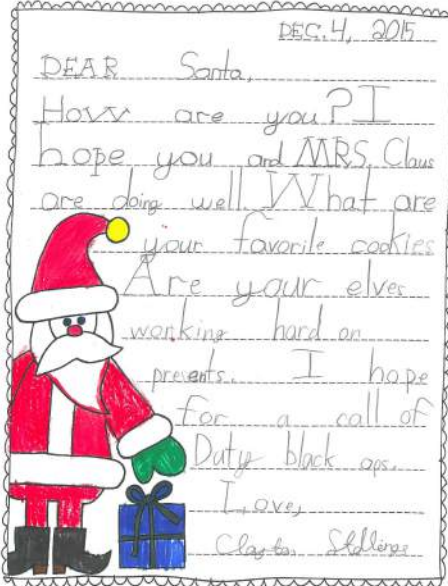 DEC. 4, 2015
DEAR Santa,
How are you? I
hope you and MRS. Claus
are doing well. What are
your favorile cookies
Are your elves
working hard on
presents. I hope
for a call of
Duty black ops.
Love,
Clayton Stallings